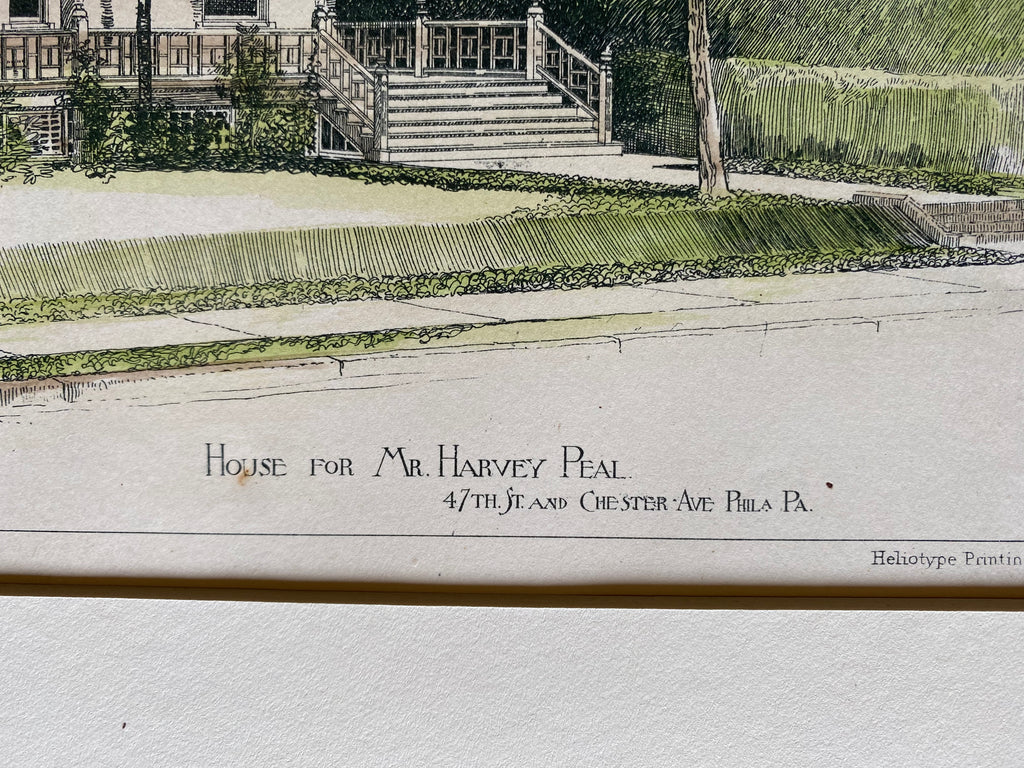 House for Mr. Harvey Peal.
47th. St. and Chester Ave Phila Pa.
Heliotype Printin